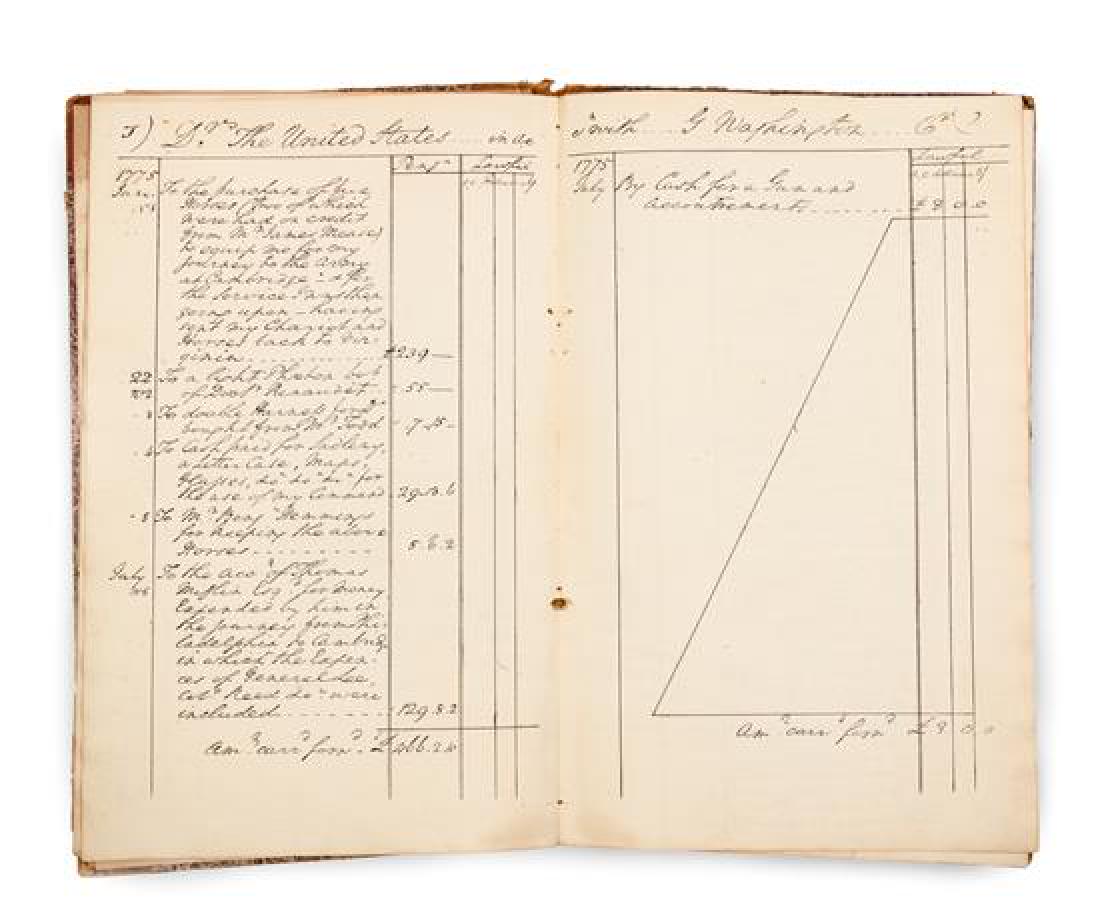 Dr. The United States .... in Ac
1775
June To the purchase of five
Horses (two of which
were had on credit
from Mr James Mease)
to equip me for my
journey to the Army
at Cambridge - & for
the Service I was then
going upon - having
sent my Chariot and
Horses back to Vir-
ginia .......... 239 —
22 To a light Phaeton
of Doctr 55 —
To double Harness for do
bought from Mr Todd - 7. 15 -
To Cash paid for
a letter Case, Maps,
Glasses, &c &c &c for
the use of my Command 29.13.6
To Mr Benj
for keeping the above
Horses --------- 5.6.2
July To the acct of Thomas
Mifflin Esqr for money
Expended by him in
the journey from Phi-
ladelphia to Cambridge
in which the Expen-
ces of General Lee,
Reed &c were
included ........ 129.8.2
Amt carrd forwd £466.2.10
with .... G Washington .... Cr
Lawful
1775
July By Cash for a Gun and
accoutrements ........ £ 8 0 0
Amt carrd forwd £ 8 0 0